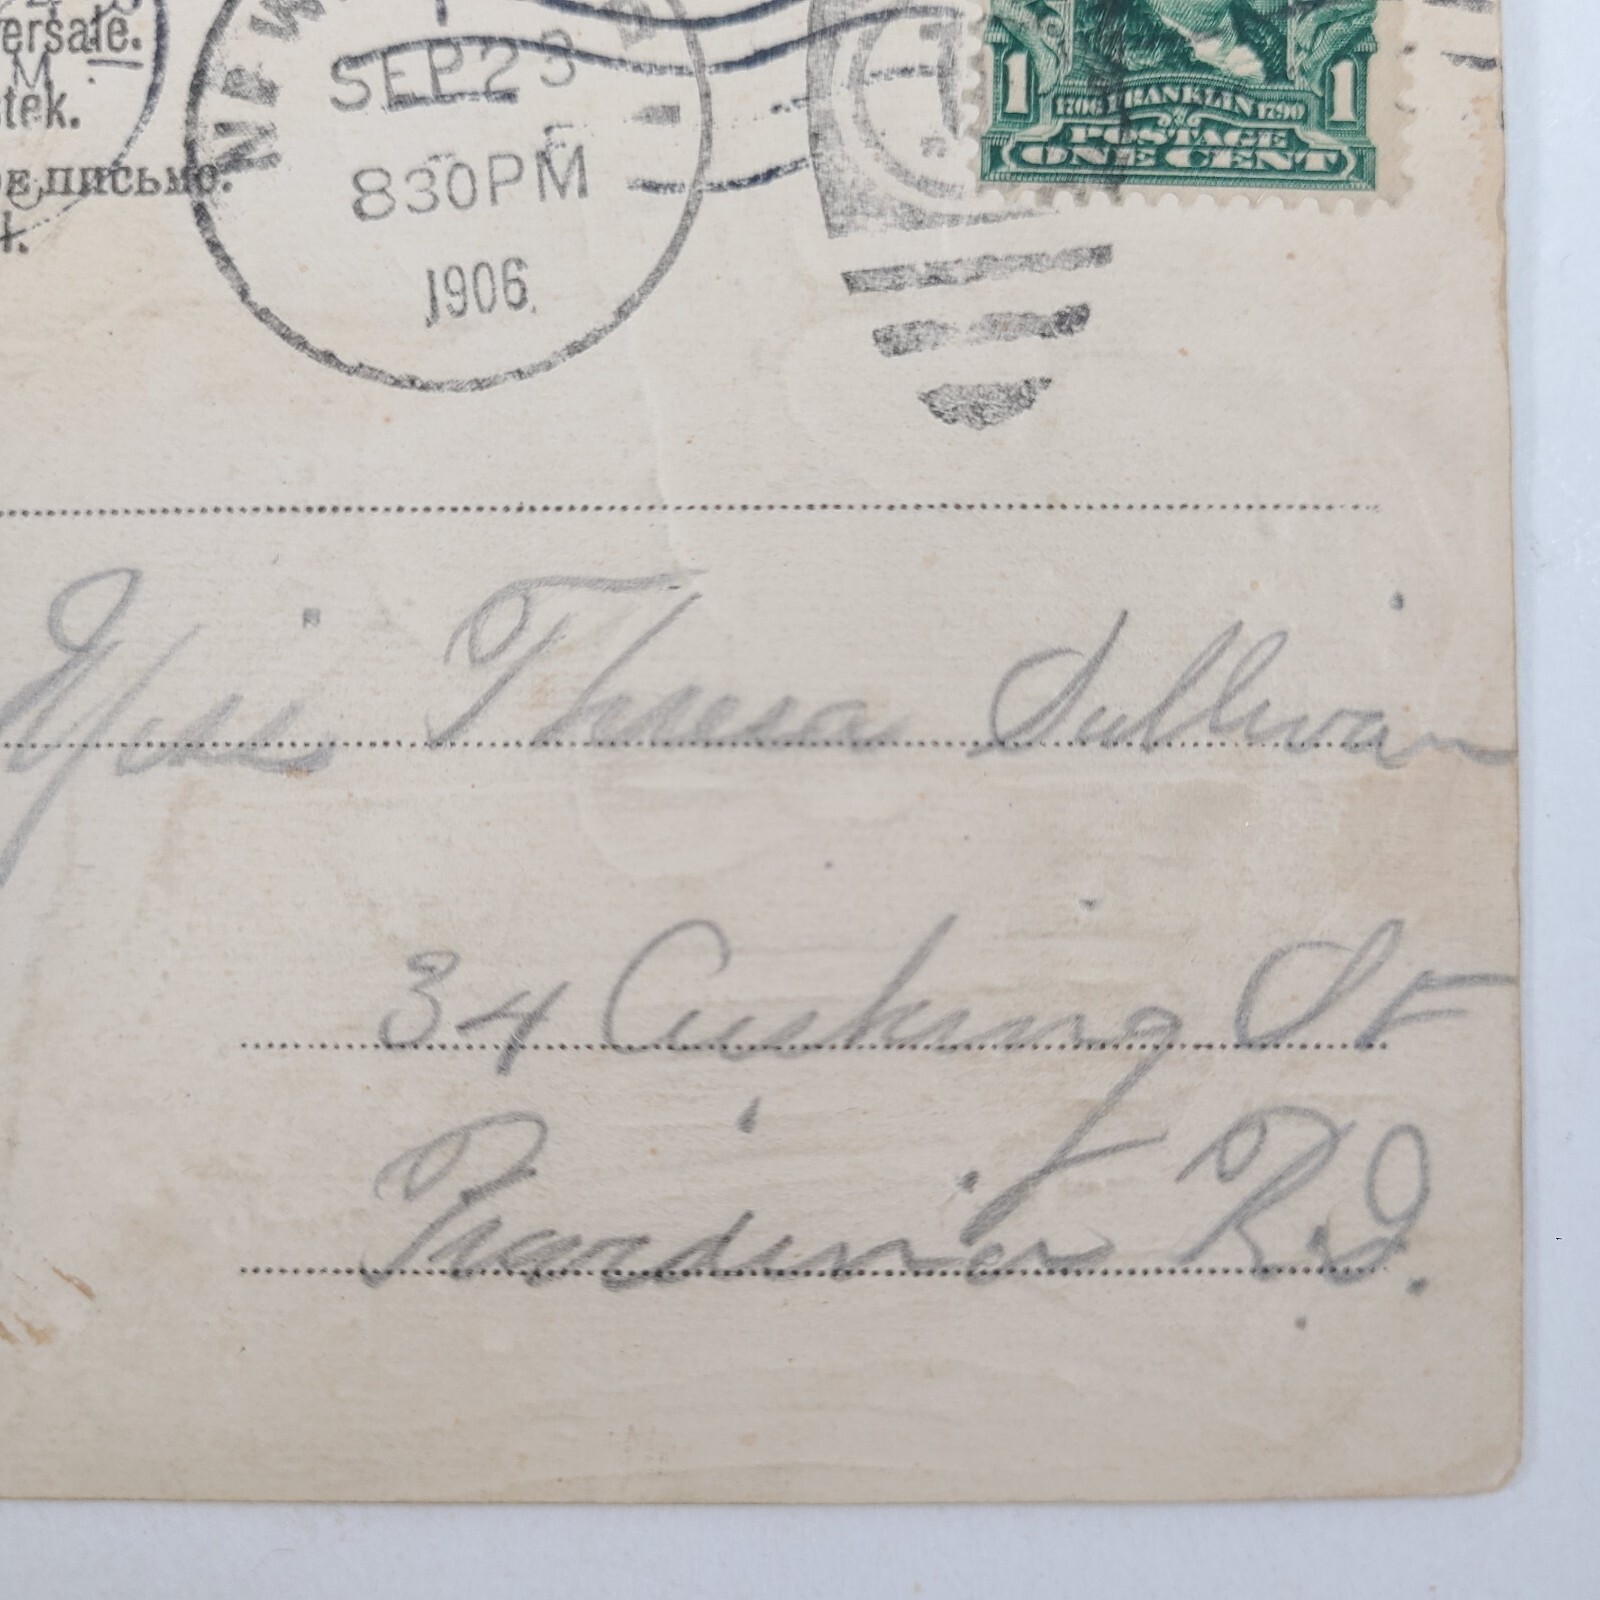 ersale.
M
tek.
письмо.
t.
NEW
SEP 23
830 PM
1906
1 1
1706 FRANKLIN 1790
POSTAGE
ONE CENT
Miss Theresa Sullivan
34 Cushing St
Providence R.I.